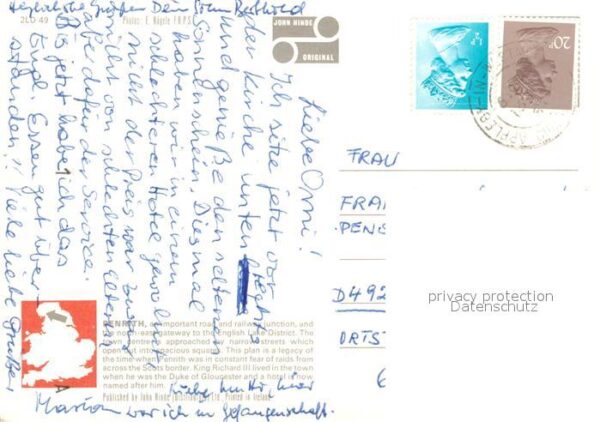 Herzliche Grüße Dein Sohn Berthold
2LD 49
Photos: E. Nägele F.R.P.S.
JOHN HINDE
ORIGINAL
Liebe Omi!
Ich sitze jetzt vor
der Kirche unten rechts
und genieße den seltenen
Sonnenschein. Diesmal
haben wir in einem
schlechteren Hotel gewohnt,
nicht der Preis war
nicht von schlechten Eltern
aber dafür der Service.
Bis jetzt habe ich das
Engl. Essen gut über-
standen!! Viele liebe Grüße
Marion
Liebe Mutti, hier
war ich in Gefangenschaft.
1½P
20P
APPLEBY-IN-W
FRAU
FRA
PEN
D492
ORTS
privacy protection
Datenschutz
PENRITH, an important road and railway junction, and
the north-east gateway to the English Lake District. The
town entirely approached by narrow streets which
open out into spacious squares. This plan is a legacy of
the time when Penrith was in constant fear of raids from
across the Scots border. King Richard III lived in the town
when he was the Duke of Gloucester and a hotel is now
named after him.
Published by John Hinde (Distributors) Ltd. Printed in Ireland